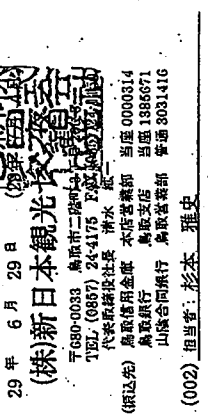 29 年 6 月 29 日
(株)新日本観光
〒680-0033 鳥取市二階町
TEL (0857) 24-4175 FAX
代表取締役社長 清水
(振込先) 鳥取信用金庫 本店営業部 当座 0000314
鳥取銀行 鳥取支店 当座 1385671
山陰合同銀行 鳥取営業部 普通 3031416
(002) 担当者: 杉本 雅史